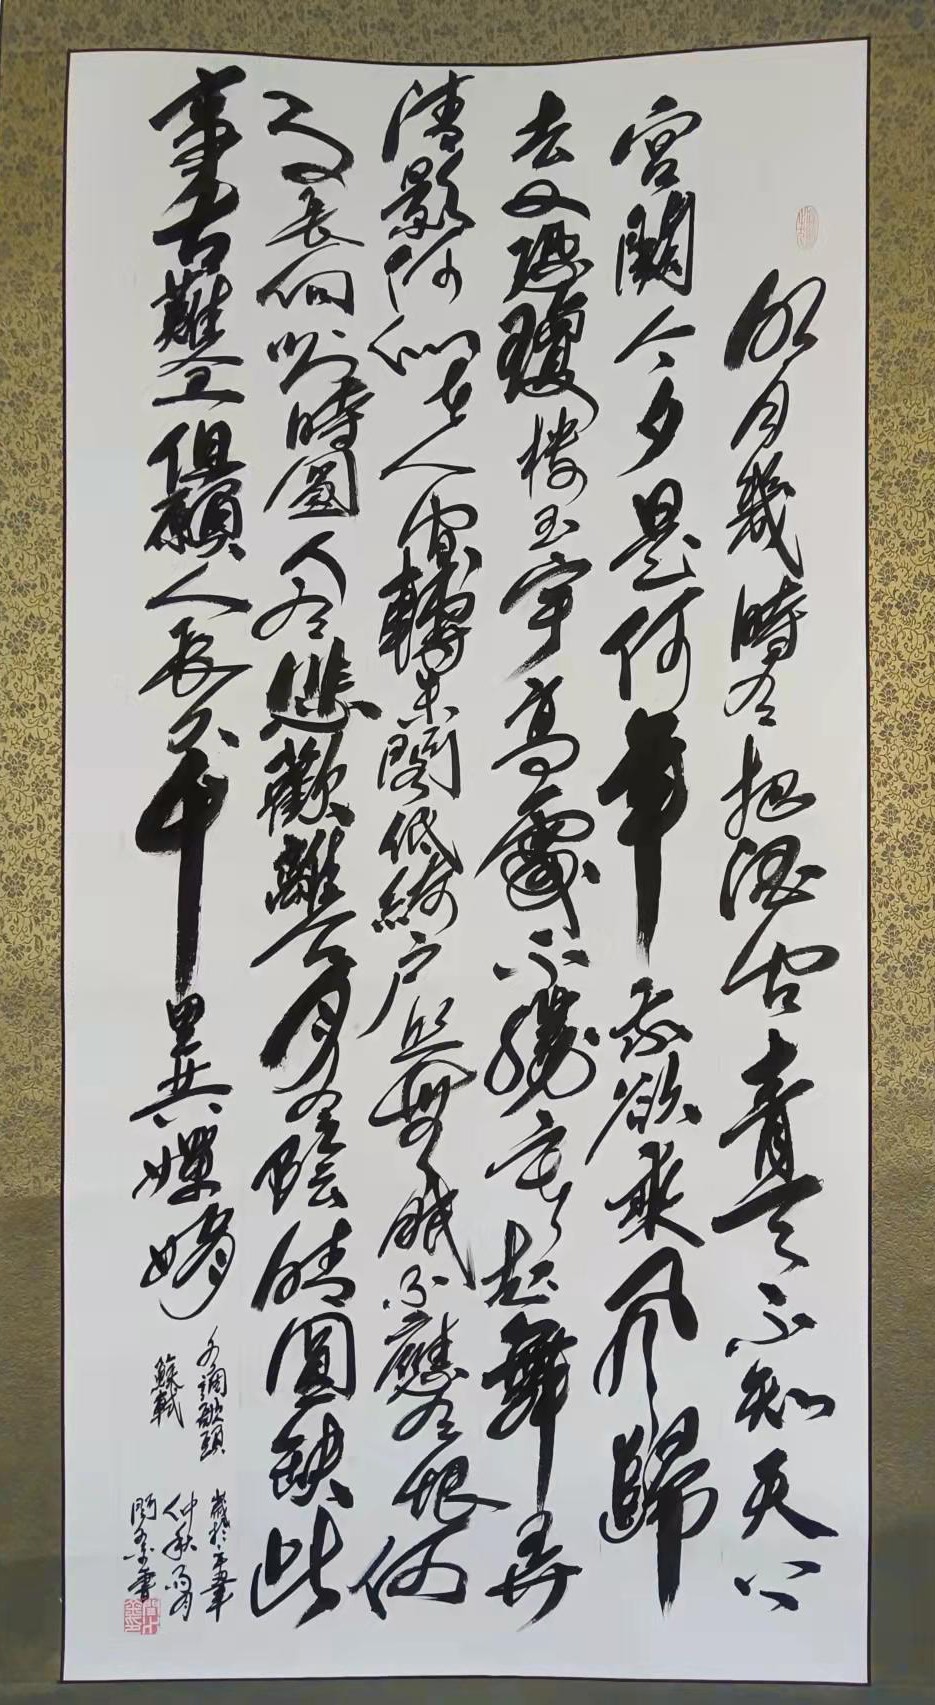 明月幾時有把酒問青天不知天上
宮闕今夕是何年我欲乘風歸
去又恐瓊樓玉宇高處不勝寒起舞弄
清影何似在人間轉朱閣低綺戶照無眠不應有恨何
事長向別時圓人有悲歡離合月有陰晴圓缺此
事古難全但願人長久千里共嬋娟
水調歌頭
蘇軾
歲於
仲秋月
書